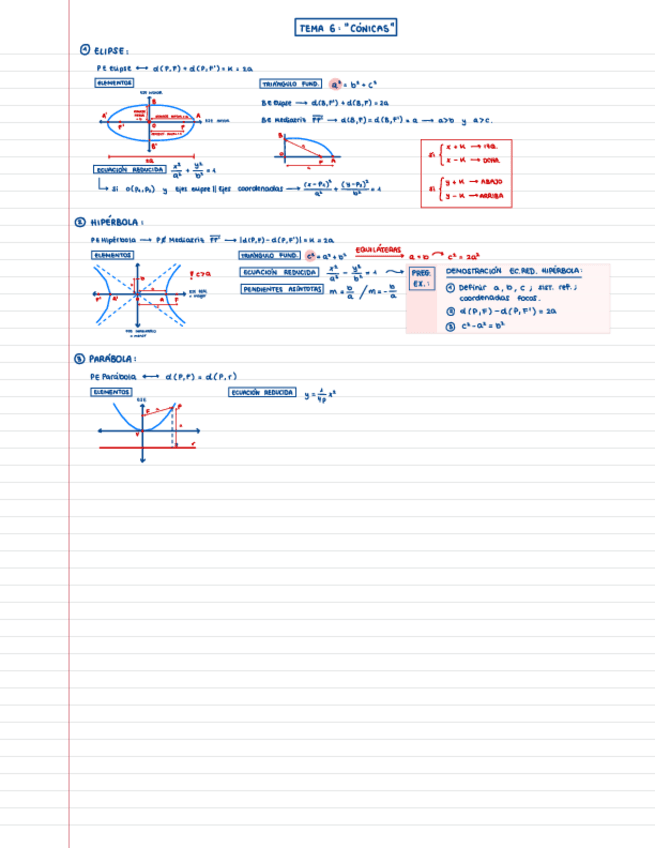 TEMA 6: "CÓNICAS"
① ELIPSE:
P ∈ Elipse ⟷ d(P,F) + d(P,F') = K = 2a
ELEMENTOS
TRIÁNGULO FUND. a² = b² + c²
B ∈ Elipse → d(B,F') + d(B,F) = 2a
B ∈ Mediatriz FF' → d(B,F) = d(B,F') = a → a>b y a>c.
Si { x + K → IZQ.
x - K → DCHA.
Si { y + K → ABAJO
y - K → ARRIBA
ECUACIÓN REDUCIDA x²/a² + y²/b² = 1
Si O(P₁,P₂) y Ejes elipse || Ejes coordenadas → (x-P₁)²/a² + (y-P₂)²/b² = 1
② HIPÉRBOLA:
P ∈ Hipérbola → P ∉ Mediatriz FF' → |d(P,F) - d(P,F')| = K = 2a
ELEMENTOS
! c>a
TRIÁNGULO FUND. c² = a² + b² EQUILÁTERAS a = b c² = 2a²
ECUACIÓN REDUCIDA x²/a² - y²/b² = 1
PENDIENTES ASÍNTOTAS m = b/a / m = - b/a
PREG. EX.:
DEMOSTRACIÓN EC. RED. HIPÉRBOLA:
① Definir a, b, c ; sist. ref. ;
coordenadas focos.
② d(P,F) - d(P,F') = 2a
③ c² - a² = b²
③ PARÁBOLA:
P ∈ Parábola ⟷ d(P,F) = d(P,r)
ELEMENTOS
EJE
ECUACIÓN REDUCIDA y = 1/4p x²